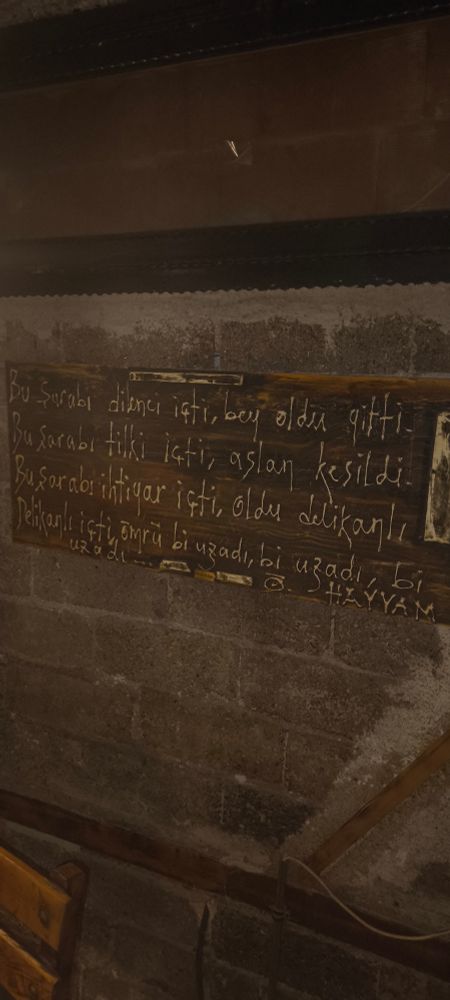 Bu şarabı dilenci içti, bey oldu gitti.
Bu şarabı tilki içti, aslan kesildi.
Bu şarabı ihtiyar içti, oldu delikanlı
Delikanlı içti, ömrü bi uzadı, bi uzadı, bi
uzadı...
Ö. HAYYAM